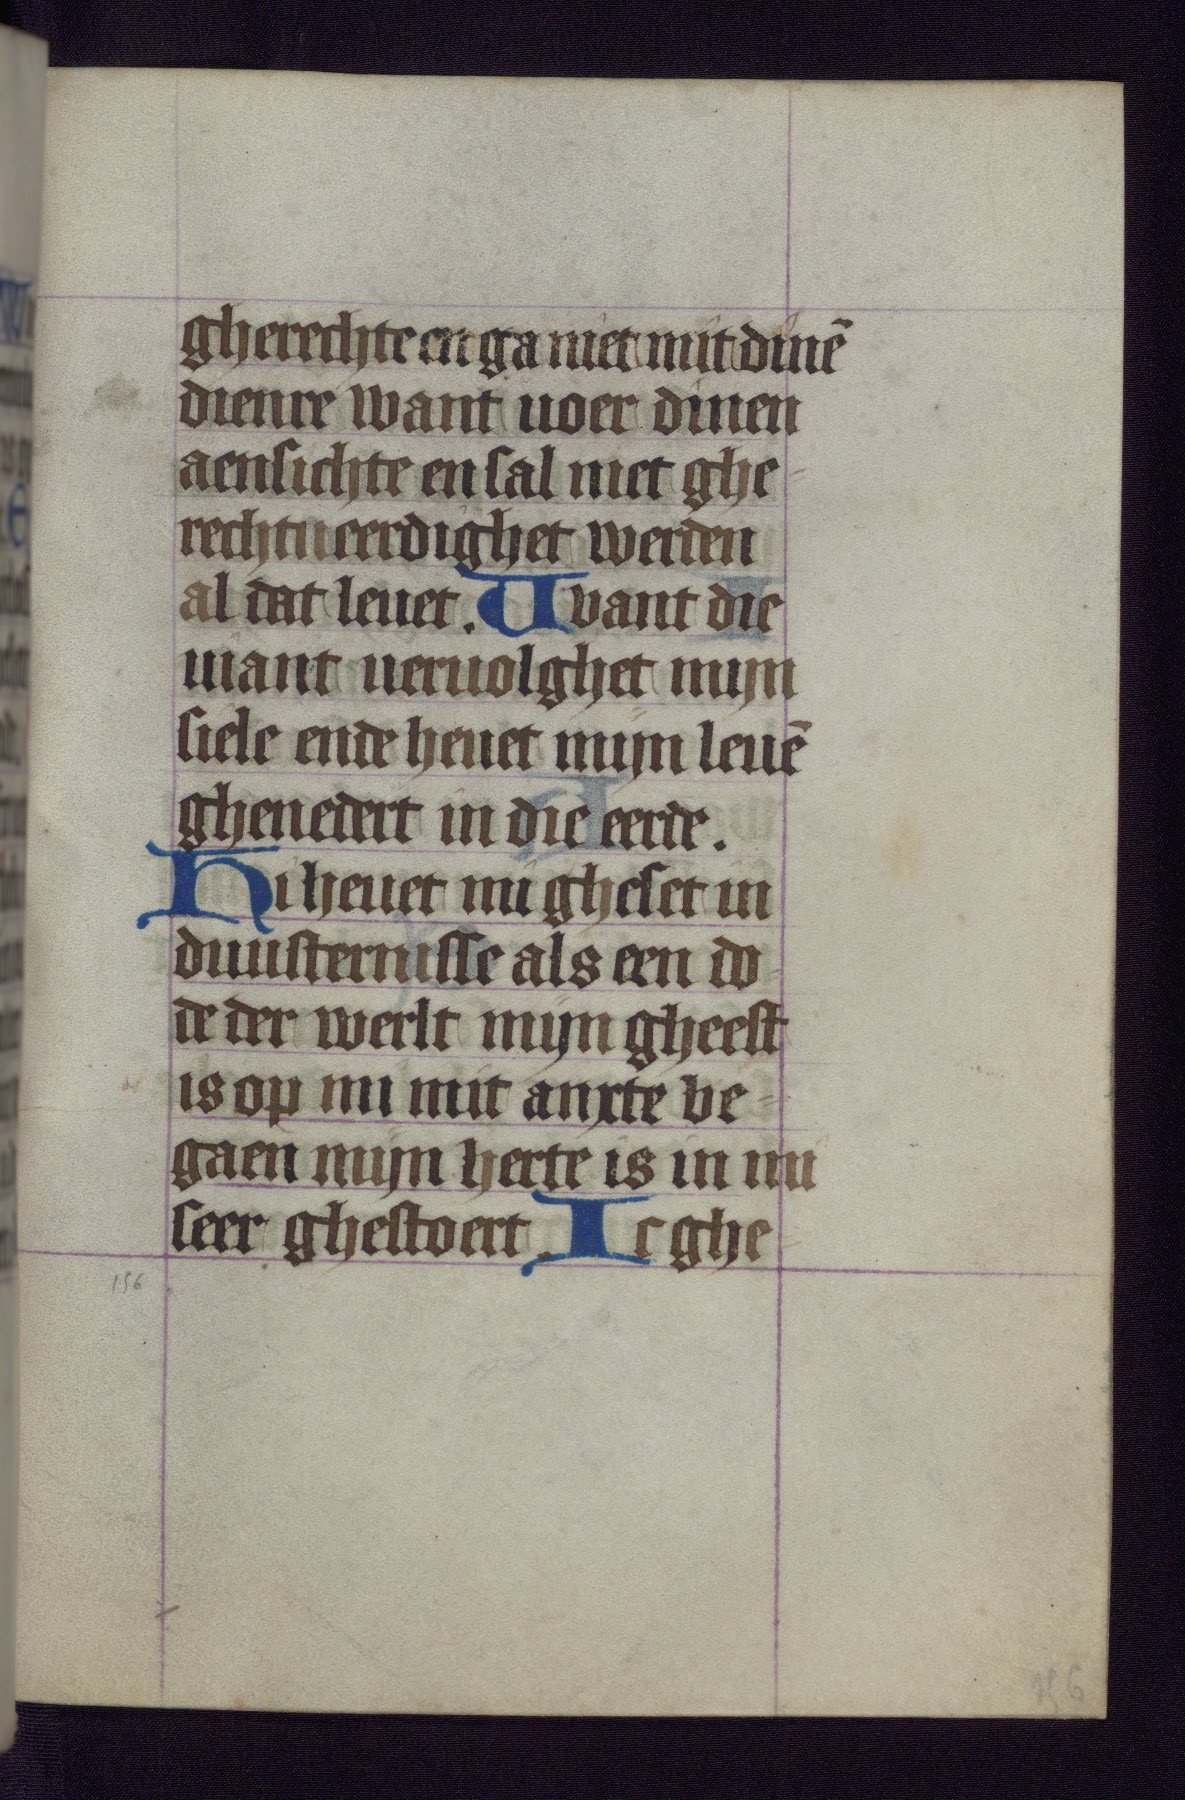 gherechte en ga niet mit dinē
dienre want uoer dinen
aensichte en sal niet ghe-
rechtueerdighet werden
al dat leuet. Want die
uiant ueruolghet mijn
siele ende heuet mijn leuē
ghenedert in die eerde.
Hi heuet mi gheset in
duusternisse als een do-
de der werlt mijn gheest
is op mi mit anxte be-
gaen mijn herte is in mi
seer ghestoert. Ic ghe
156
156